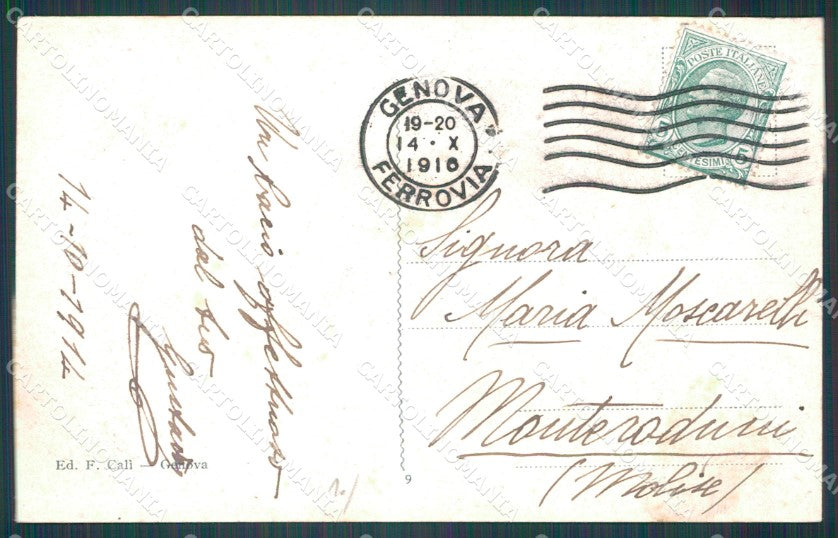 GENOVA
19-20
14 · X
1916
FERROVIA
POSTE ITALIANE
5 CENTESIMI 5
Signora
Maria Moscarelli
Monteroduni
(Molise)
Un bacio affettuoso
dal tuo
Gustavo
14-10-1914
Ed. F. Calì — Genova
9
CARTOLINOMANIA